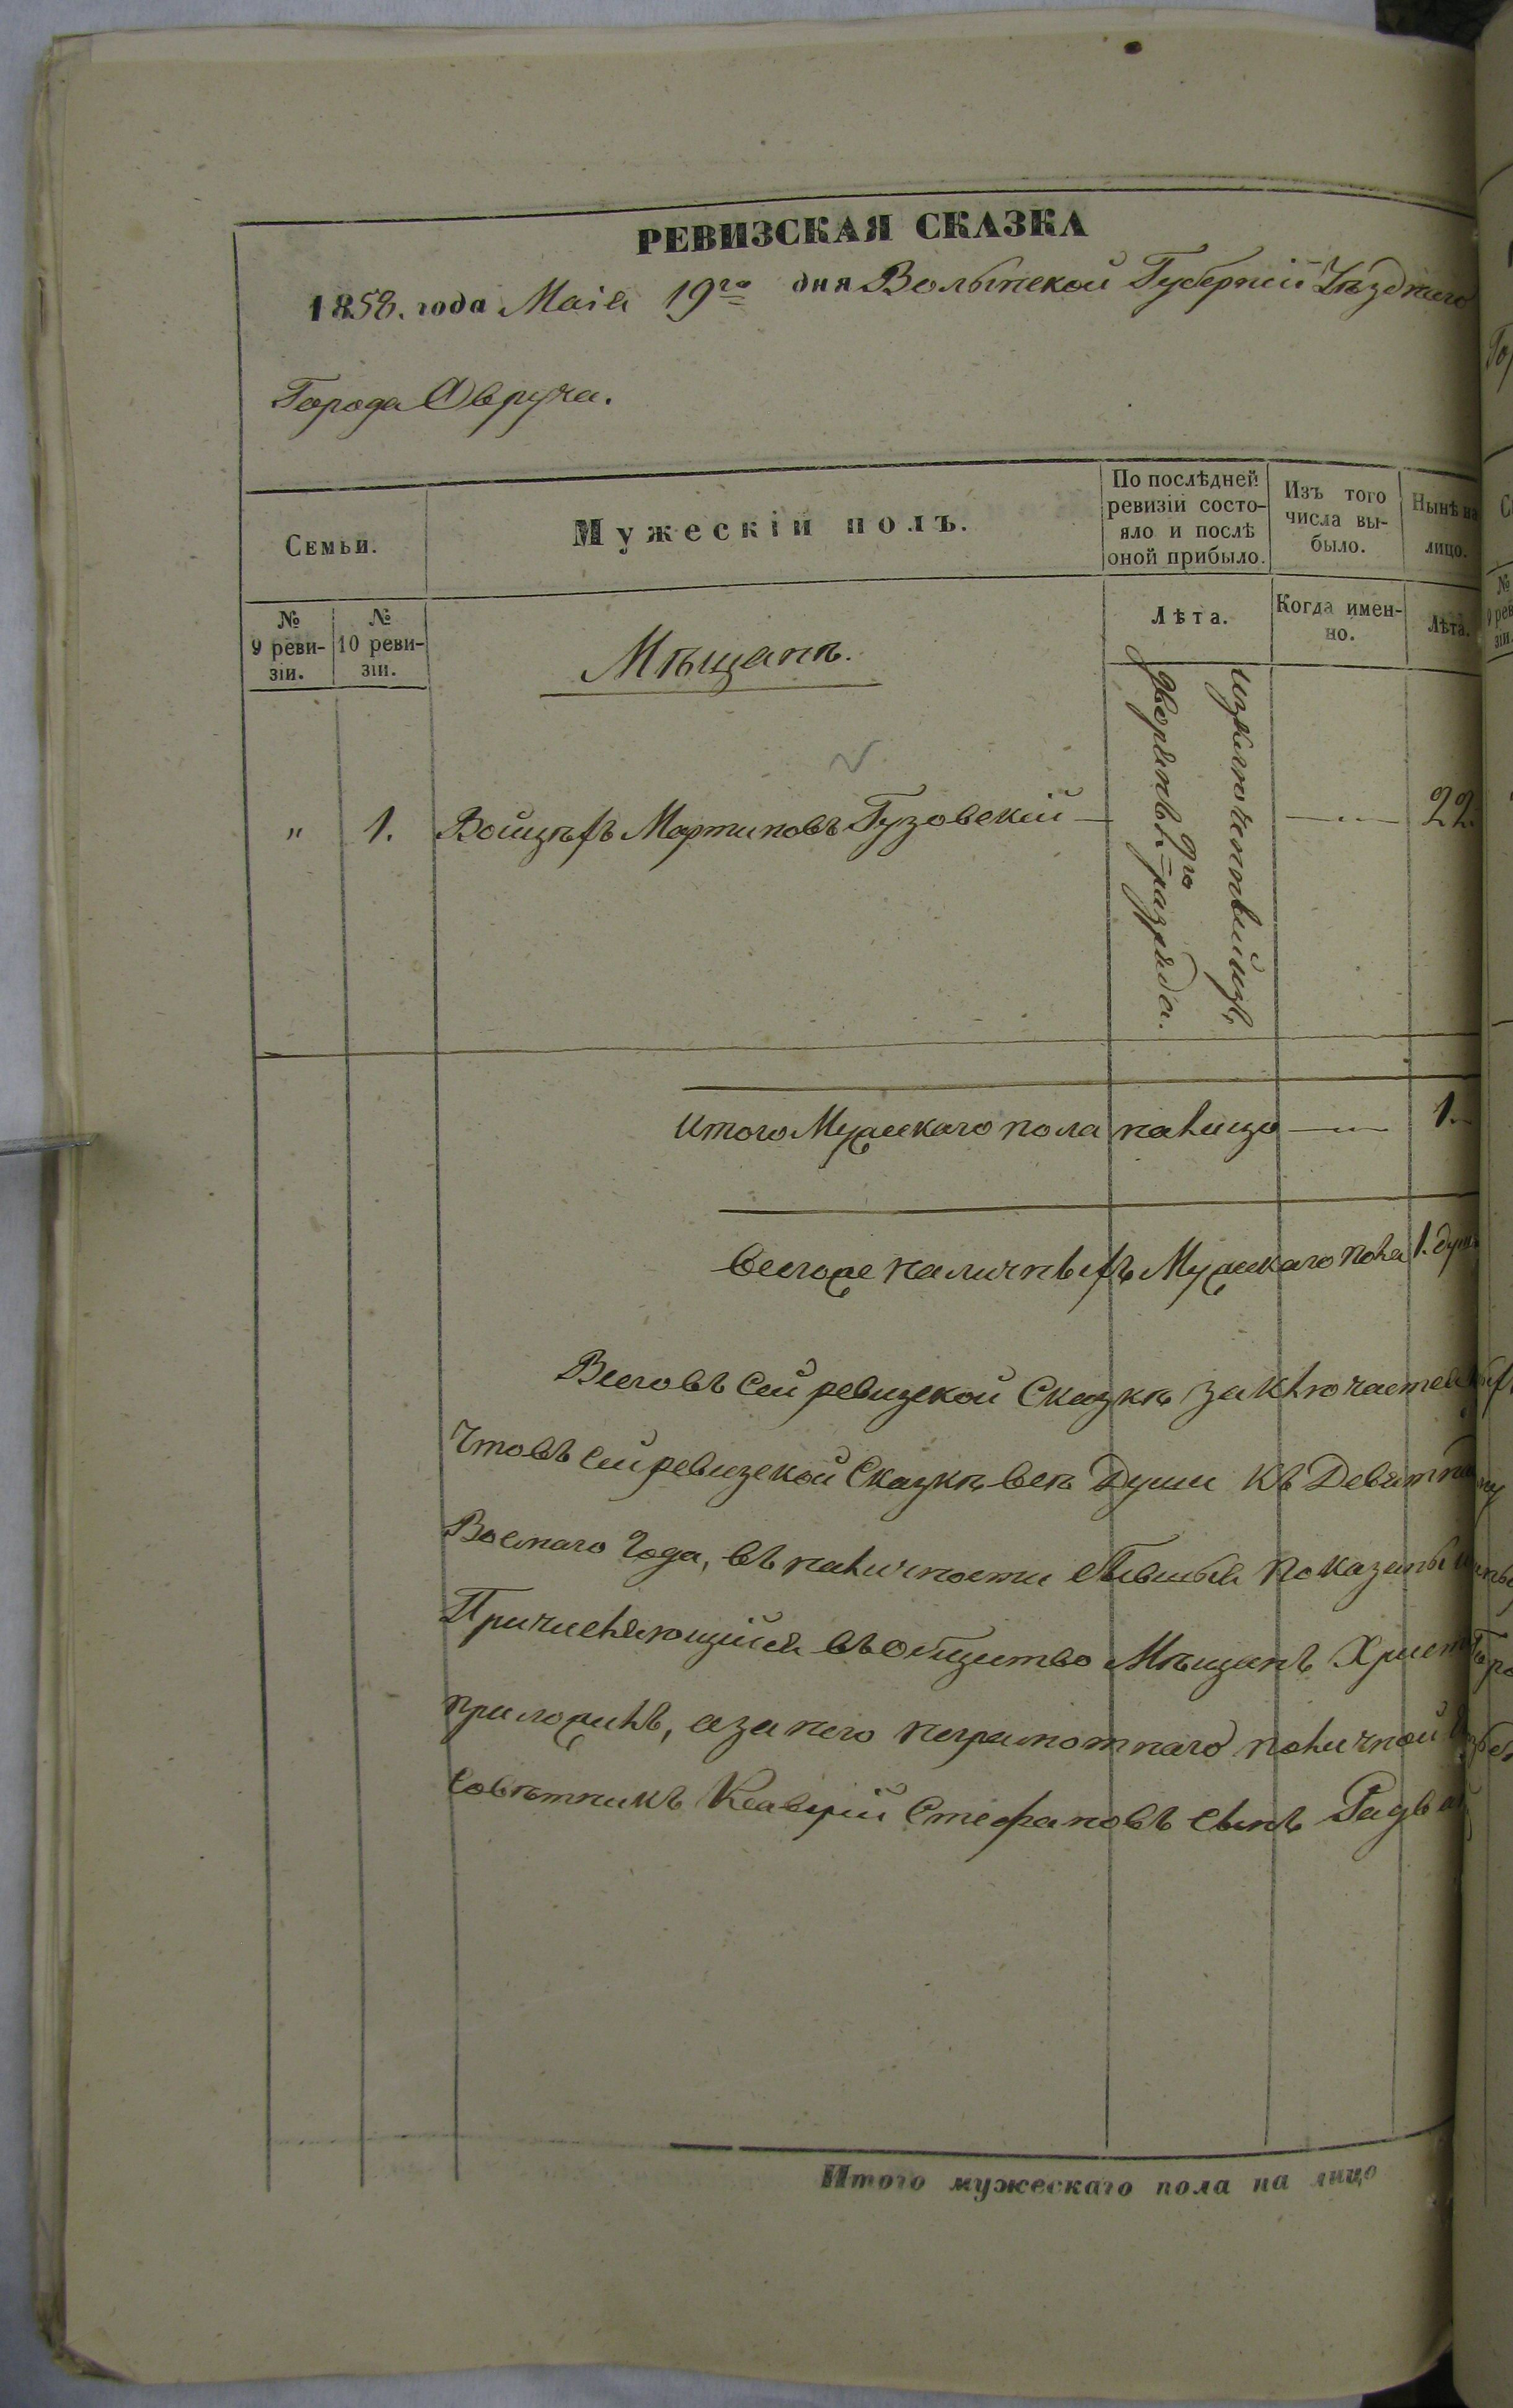 РЕВИЗСКАЯ СКАЗКА
1858. года Маія 19го дня Волынской Губерніи Уѣзднаго
Города Овруча.
Семьи.
Мужескій полъ.
По послѣдней ревизіи состо-
яло и послѣ
оной прибыло.
Изъ того
числа вы-
было.
Нынѣ на
лицо.
№
9 реви-
зіи.
№
10 реви-
зіи.
Мѣщанъ.
Лѣта.
Когда имен-
но.
Лѣта.
" 1. Войцѣхъ Мартиновъ Гузовскій — — 22.
изключенный изъ
дворянъ 1го разряда.
Итого Мужескаго пола налицо — 1.
Всегоже наличныхъ Мужескаго пола 1. душ
Всего въ сей ревизской Сказкѣ заключается
Что въ сей ревизской Сказкѣ всѣ Души къ Девятна
Восмаго Года, въ наличности бывшыя показаны
Причисляющійся въ общество Мѣщанъ Христ
приложилъ, а за него неграмотнаго поличной
Совѣтникъ Ксаверій Стефановъ сынъ
Итого мужескаго пола на лицо